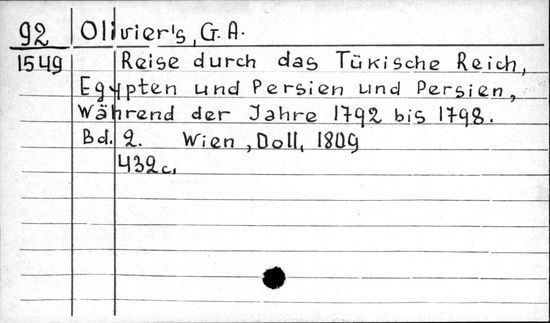 92 Olivier's, G. A.
1549 Reise durch das Tükische Reich,
Egypten und Persien und Persien,
Während der Jahre 1792 bis 1798.
Bd. 2. Wien, Doll, 1809
432c.